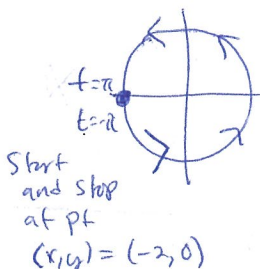 t=π
t=-π
Start
and stop
at pt
(x,y) = (-2,0)